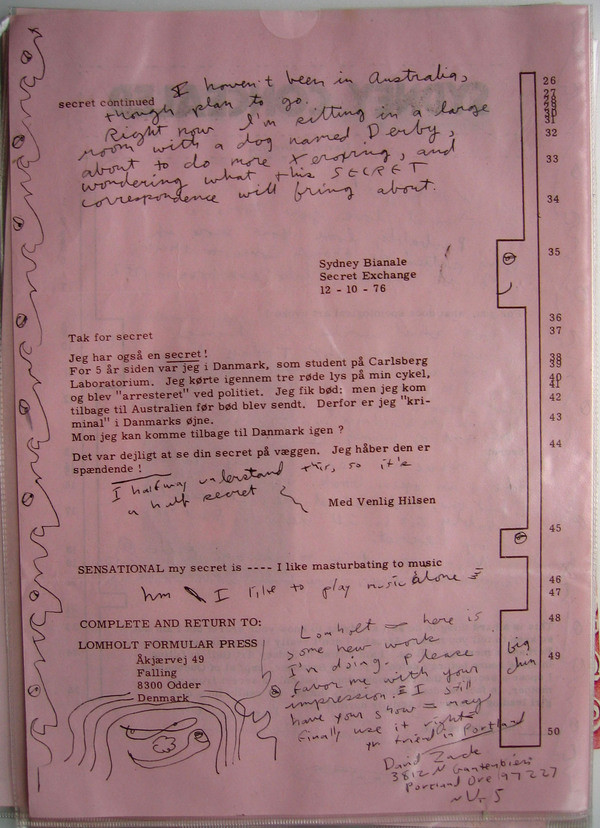 I haven't been in Australia,
secret continued though plan to go.
Right now I'm sitting in a large
room with a dog named Derby,
about to do more xeroxing, and
wondering what this SECRET
correspondence will bring about.
Sydney Bianale
Secret Exchange
12 - 10 - 76
Tak for secret
Jeg har også en secret !
For 5 år siden var jeg i Danmark, som student på Carlsberg
Laboratorium. Jeg kørte igennem tre røde lys på min cykel,
og blev "arresteret" ved politiet. Jeg fik bød: men jeg kom
tilbage til Australien før bød blev sendt. Derfor er jeg "kri-
minal" i Danmarks øjne.
Mon jeg kan komme tilbage til Danmark igen ?
Det var dejligt at se din secret på væggen. Jeg håber den er
spændende !
I halfway understand this, so it's
a half secret
Med Venlig Hilsen
SENSATIONAL my secret is ---- I like masturbating to music
hm I like to play music alone
COMPLETE AND RETURN TO:
LOMHOLT FORMULAR PRESS
Åkjærvej 49
Falling
8300 Odder
Denmark
Lomholt = here is
some new work
I'm doing. Please
favor me with your
impression. I still
have your show = may
finally use it right
yr friend in Portland
David Zack
3812 N Gantenbein
Portland Ore 97227
big
chin
26
27
28
29
30
31
32
33
34
35
36
37
38
39
40
41
42
43
44
45
46
47
48
49
50